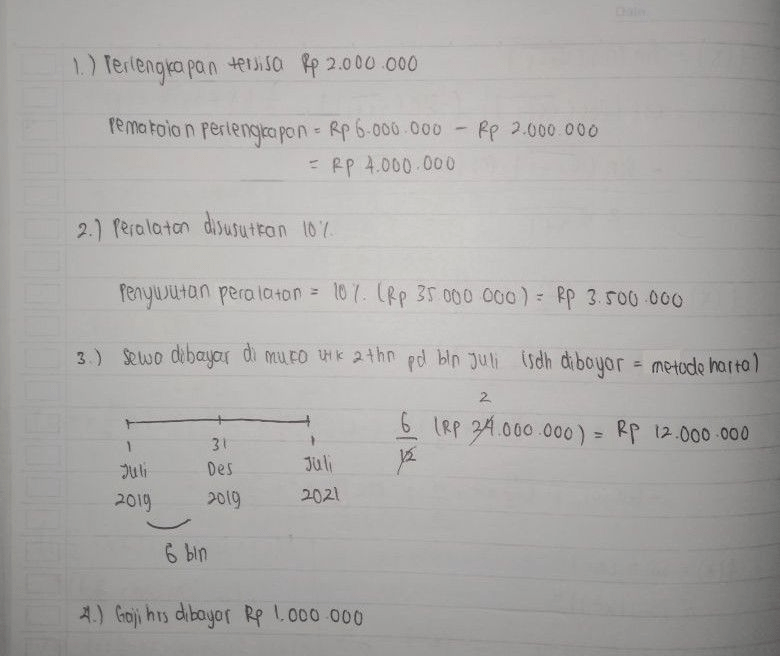 1.) Perlengkapan tersisa Rp 2.000.000
Pemakaian perlengkapan = Rp 6.000.000 - Rp 2.000.000
= Rp 4.000.000
2.) Peralatan disusutkan 10%
Penyusutan peralatan = 10% (Rp 35.000.000) = Rp 3.500.000
3.) Sewa dibayar di muka utk 2 thn pd bln Juli (sdh dibayar = metode harta)
2
6/12 (Rp 24.000.000) = Rp 12.000.000
1 31 1
Juli Des Juli
2019 2019 2021
6 bln
4.) Gaji hrs dibayar Rp 1.000.000